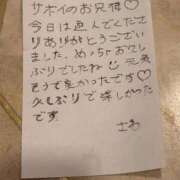 サホイのお兄様
今日は遊んでくださ
りありがとうござい
ました。めっちゃお久し
ぶりでしたね☺元気
そうで良かったです♡
久しぶりで楽しかった
です